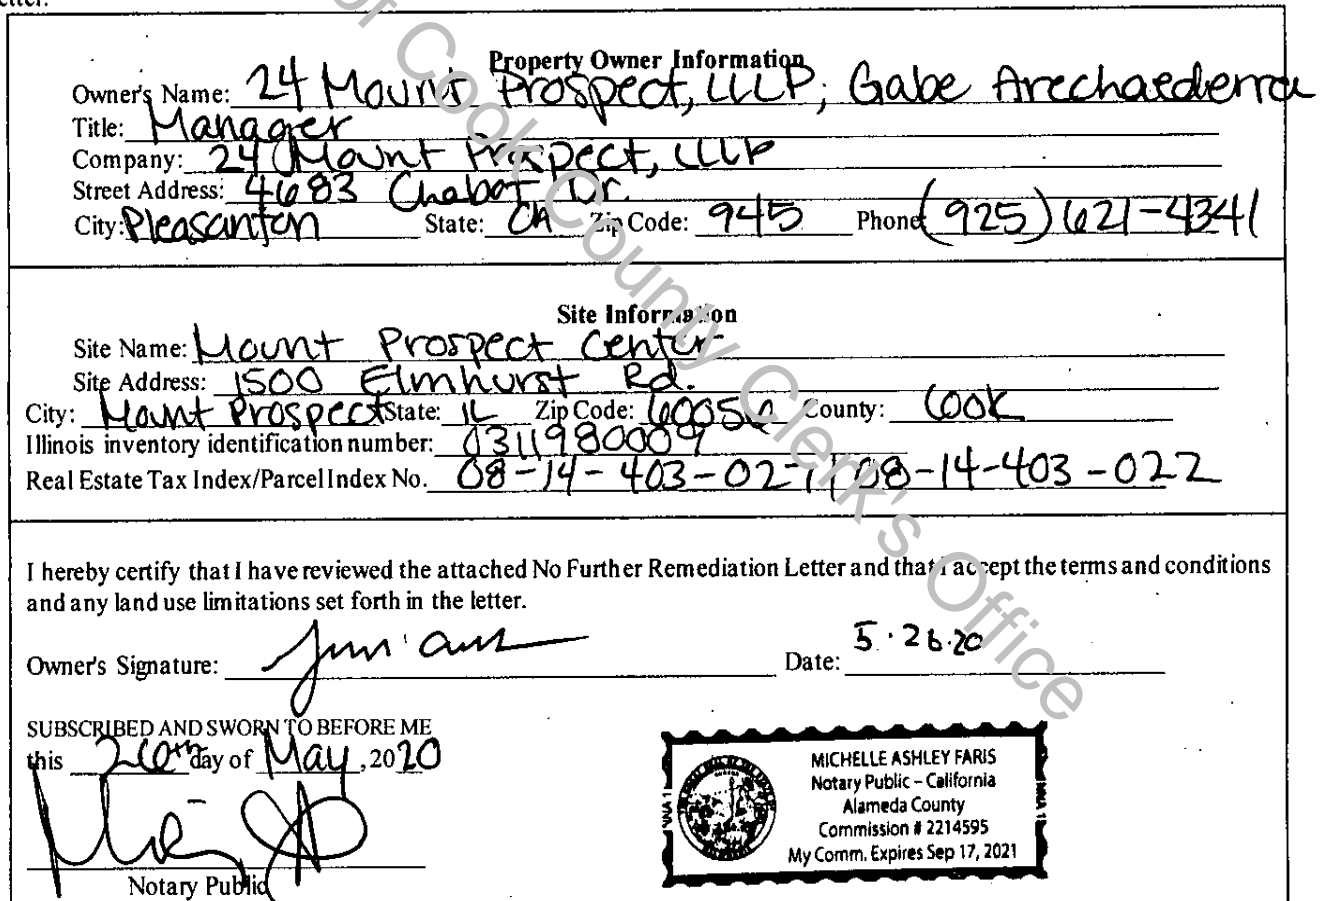 Property Owner Information
Owner's Name: 24 Mount Prospect, LLLP; Gabe Arechaederra
Title: Manager
Company: 24 Mount Prospect, LLLP
Street Address: 4683 Chabot Dr.
City: Pleasanton State: CA Zip Code: 945 Phone (925) 621-4341
Site Information
Site Name: Mount Prospect Center
Site Address: 1500 Elmhurst Rd.
City: Mount Prospect State: IL Zip Code: 60056 County: COOK
Illinois inventory identification number: 0311980009
Real Estate Tax Index/Parcel Index No. 08-14-403-027 | 08-14-403-022
I hereby certify that I have reviewed the attached No Further Remediation Letter and that I accept the terms and conditions
and any land use limitations set forth in the letter.
Owner's Signature: Date: 5.26.20
SUBSCRIBED AND SWORN TO BEFORE ME
this 26th day of May, 2020
Notary Public
MICHELLE ASHLEY FARIS
Notary Public – California
Alameda County
Commission # 2214595
My Comm. Expires Sep 17, 2021
of Cook County Clerk's Office